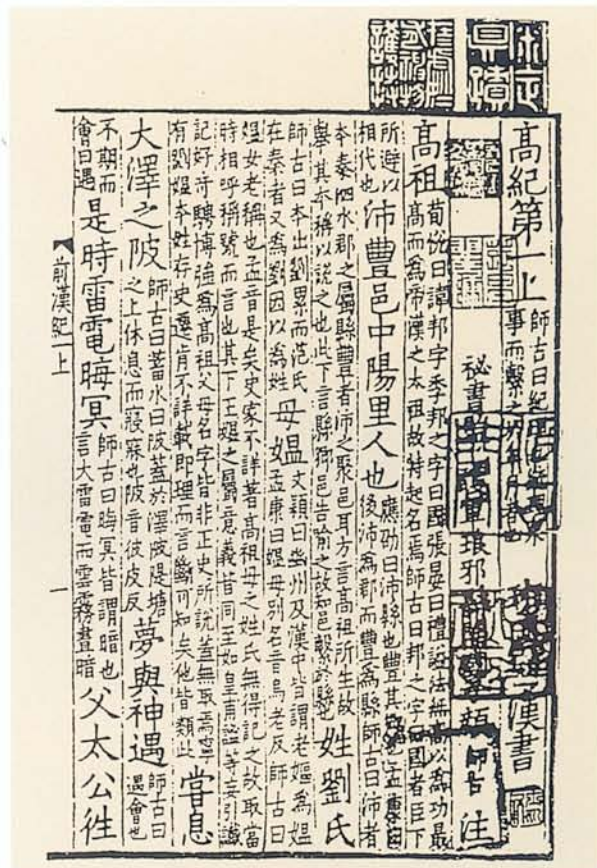 高紀第一上 師古曰紀理也統理衆事而繫之於年月者也 漢書
祕書 軍琅邪 顏師古注
高祖 荀悅曰諱邦字季邦之字曰國張晏曰禮謚法無高以爲功最高而爲帝漢之太祖故特起名焉師古曰邦之字曰國者臣下
所避以相代也 沛豐邑中陽里人也 應劭曰沛縣也豐其鄉也孟康曰後沛爲郡而豐爲縣師古曰沛者
本秦泗水郡之屬縣豐者沛之聚邑耳方言高祖所生故舉其本稱以說之也此下言縣鄉邑告喻之故知邑繫於縣也 姓劉氏
師古曰本出劉累而范氏在秦者又爲劉因以爲姓 母媼 文穎曰幽州及漢中皆謂老嫗爲媼孟康曰媼母別名音烏老反師古曰
媼女老稱也孟音是矣史家不詳著高祖母之姓氏無得記之故取當時相呼稱號而言也其下王媼之屬意義皆同至如皇甫謐等妄引讖
記好奇騁博強爲高祖父母名字皆非正史所說蓋無取焉寧有劉媼本姓存史遷肯不詳載即理而言斷可知矣他皆類此 嘗息
大澤之陂 師古曰蓄水曰陂蓋於澤陂隄塘之上休息而寢寐也陂音彼皮反 夢與神遇 師古曰遇會也
不期而會曰遇 是時雷電晦冥 師古曰晦冥皆謂暗也言大雷電而雲霧晝暗 父太公往
前漢紀一上 一